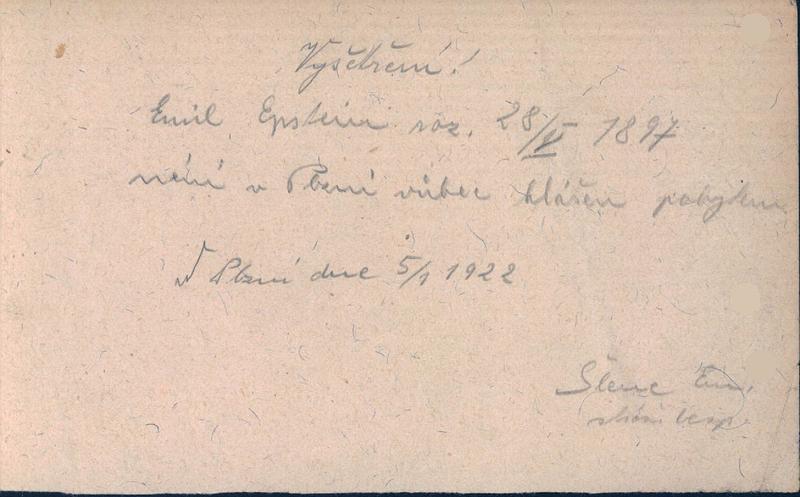 Vyšetření!
Emil Epstein roz. 28/V 1897
není v Plzni vůbec hlášen pobytem
V Plzni dne 5/1 1922